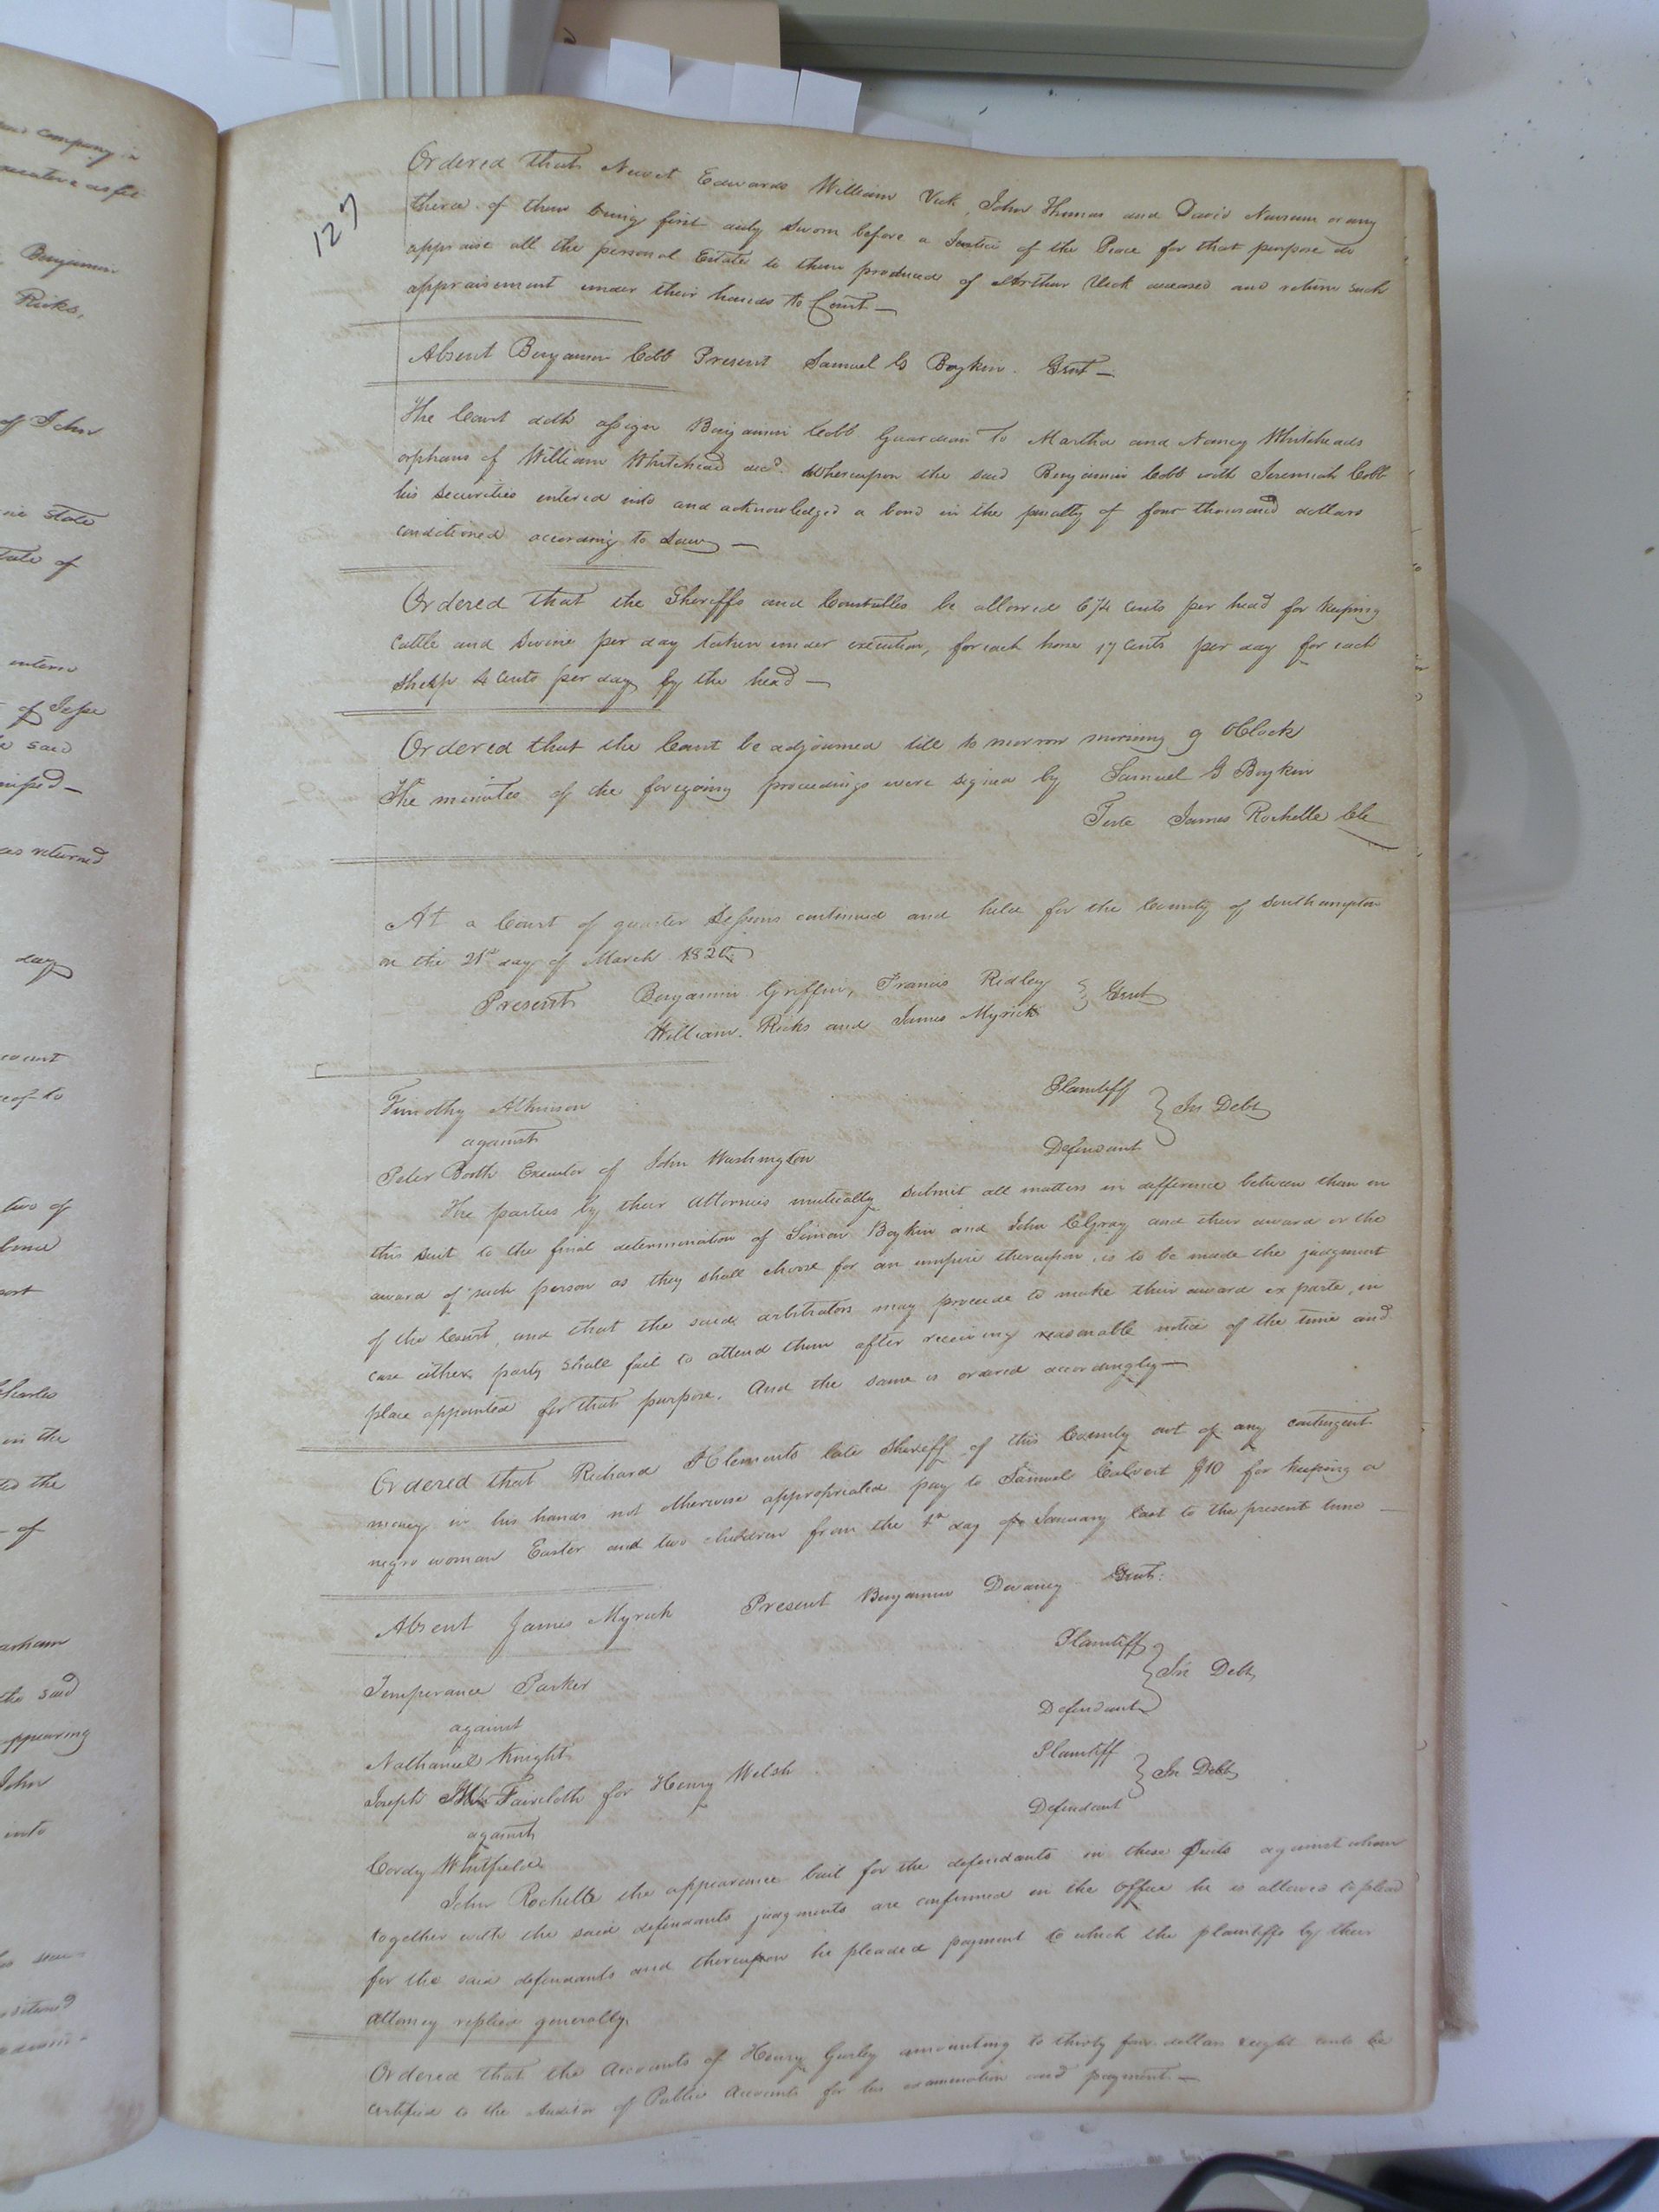 127
Ordered that Newit Edwards William Vick, John Thomas and David Newsum or any
three of them being first duly sworn before a Justice of the Peace for that purpose do
appraise all the personal Estate to them produced of Arthur Vick deceased and return such
appraisement under their hands to Court —
Absent Benjamin Cobb Present Samuel G Boykin. Gent —
The Court doth assign Benjamin Cobb Guardian to Martha and Nancy Whiteheads
orphans of William Whitehead decd. Whereupon the said Benjamin Cobb with Jeremiah Cobb
his securities entered into and acknowledged a bond in the penalty of four thousand dollars
conditioned according to Law —
Ordered that the Sheriffs and Constables be allowed 6¼ Cents per head for keeping
Cattle and Swine per day taken under execution, for each horse 17 Cents per day for each
Sheep 4 Cents per day by the head —
Ordered that the Court be adjourned till to morrow morning 9 OClock
The minutes of the foregoing proceedings were signed by Samuel G Boykin
Teste James Rochelle Clk
At a Court of quarter Sessions continued and held for the County of Southampton
on the 21st day of March 1820
Present Benjamin Griffin, Francis Ridley } Gent
William Ricks and James Myrick
Timothy Atkinson Plaintiff
against } In Debt
Peter Booth Executor of John Washington Defendant
The parties by their attornies mutually submit all matters in difference between them in
this suit to the final determination of Simon Boykin and John C Gray and their award or the
award of such person as they shall choose for an umpire thereupon, is to be made the judgment
of the Court, and that the said arbitrators may proceede to make their award ex parte, in
case either party shall fail to attend them after receiving reasonable notice of the time and
place appointed for that purpose. And the same is ordered accordingly —
Ordered that Richard H Clements late Sheriff of this County out of any contingent
money in his hands not otherwise appropriated pay to Samuel Calvert $10 for keeping a
negro woman Easter and two children from the 1st day of January last to the present time —
Absent James Myrick Present Benjamin Devaney Gent.
Temperance Parker Plaintiff
against } In Debt
Nathaniel Knight Defendant
Joseph Faircloth for Henry Welsh Plaintiff
against } In Debt
Cordy Whitfield Defendant
John Rochelle the appearance bail for the defendants in these Suits against whom
together with the said defendants judgments are confirmed in the Office he is allowed to plead
for the said defendants and thereupon he pleaded payment to which the plaintiffs by their
attorney replied generally.
Ordered that the accounts of Henry Gurley amounting to thirty four dollars eight cents be
certified to the Auditor of Public Accounts for his examination and payment —